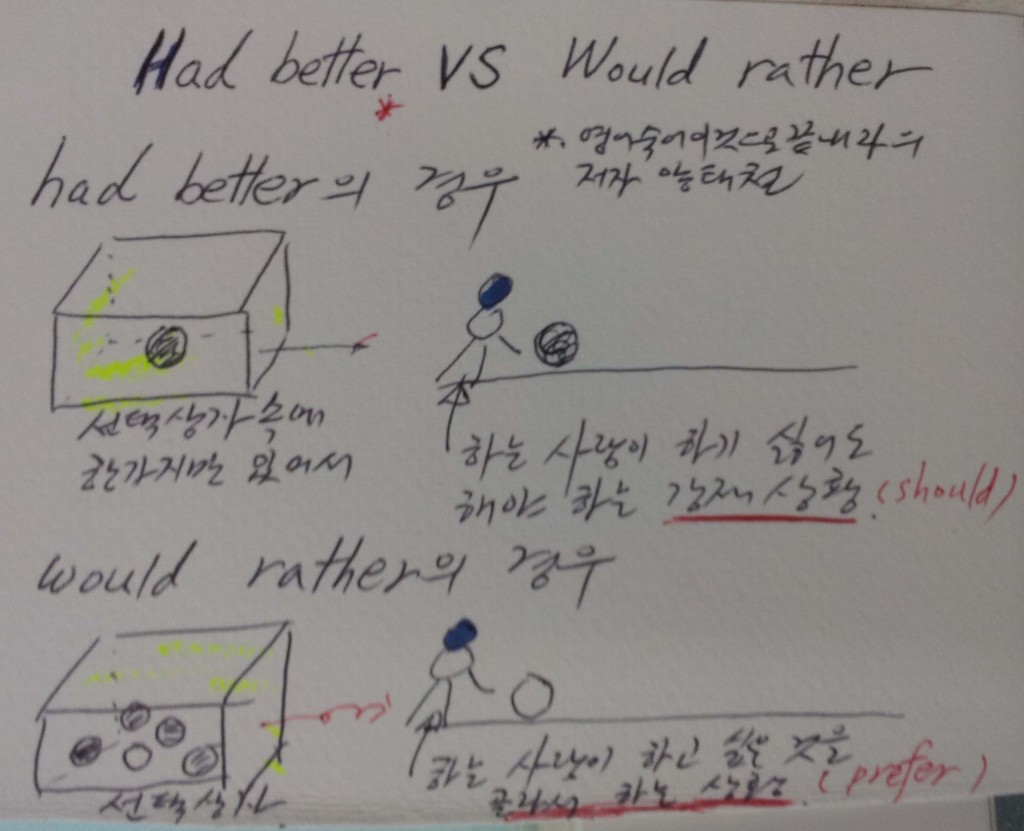 Had better VS Would rather
*
*. 영어숙어이것으로끝내라의
저자 안태철
had better의 경우
선택상자 속에
한가지만 있어서
하는 사람이 하기 싫어도
해야 하는 강제상황 (should)
would rather의 경우
선택상자
하는 사람이 하고 싶은 것을
골라서 하는 상황. (prefer)